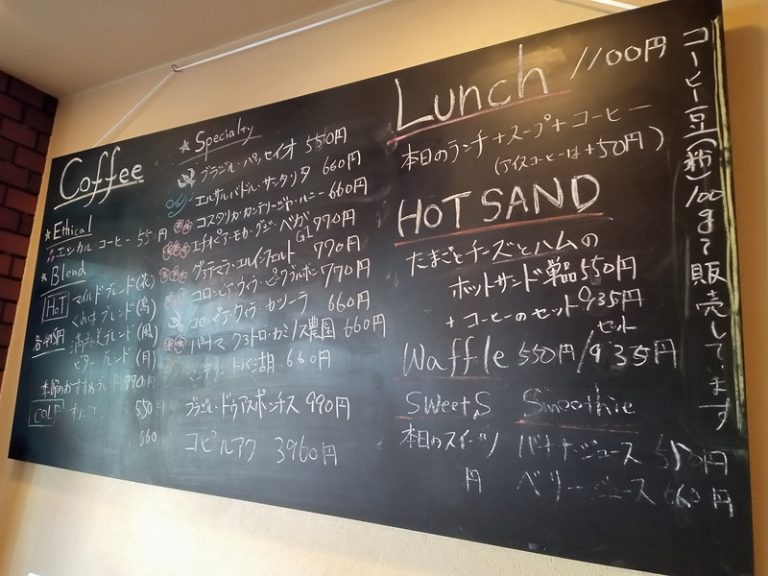 Coffee
★ Ethical
エシカル・コーヒー 550円
★ Blend
HOT マイルドブレンド(花)
ブレンド(鳥)
ブレンド(風)
ビターブレンド(月)
季節のおすすめブレンド 990円
COLD
550
660
★ Specialty
ブラジル・パッセイオ 550円
エルサルバドル・サンタリタ 660円
コスタリカ・ハニー 660円
エチオピア・モカ・グジ・ベガ G1 770円
グァテマラ・エルインフェルト 770円
コロンビア・ウィラ・ピンクブルボン 770円
コロンビア・ウィラ・カソーラ 660円
パナマ・カミノス農園 660円
マンデリン・トバ湖 660円
ブラジル・ドゥアスポンチス 990円
コピルアク 3960円
Lunch 1100円
本日のランチ+スープ+コーヒー
(アイスコーヒーは+50円)
HOT SAND
たまごとチーズとハムの
ホットサンド 単品550円
+コーヒーのセット 935円
セット
Waffle 550円/935円
Sweets
本日のスイーツ
円
Smoothie
バナナジュース 550円
ベリージュース 660円
コーヒー豆(粉)100gで販売しています